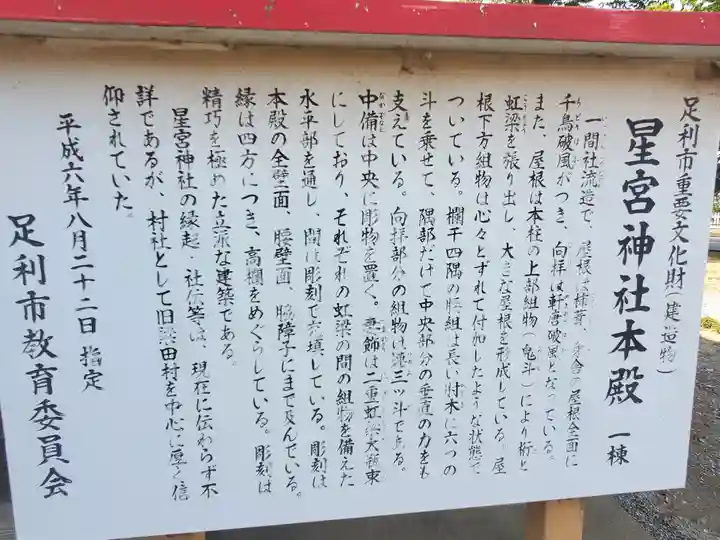 足利市重要文化財(建造物)
星宮神社本殿 一棟
一間社流造で、屋根は柿葺、身舎の屋根全面に
千鳥破風がつき、向拝は軒唐破風となっている。
また、屋根は本柱の上部組物(鬼斗)により桁と
虹梁を張り出し、大きな屋根を形成している。屋
根下方組物は心々とずれて付加したような状態で
ついている。欄干四隅の腰組は長い肘木に六つの
斗を乗せて、隅部だけで中央部分の垂直の力をも
支えている。向拝部分の組物は連三ッ斗である。
中備は中央に彫物を置く。妻飾は二重虹梁大瓶束
にしており、それぞれの虹梁の間の組物を備えた
水平部を通し、間は彫刻で充填している。彫刻は
本殿の全壁面、腰壁面、脇障子にまで及んでいる。
縁は四方につき、高欄をめぐらしている。彫刻は
精巧を極めた立派な建築である。
星宮神社の縁起、社伝等は、現在に伝わらず不
詳であるが、村社として旧梁田村を中心に厚く信
仰されていた。
平成六年八月二十二日 指定
足利市教育委員会